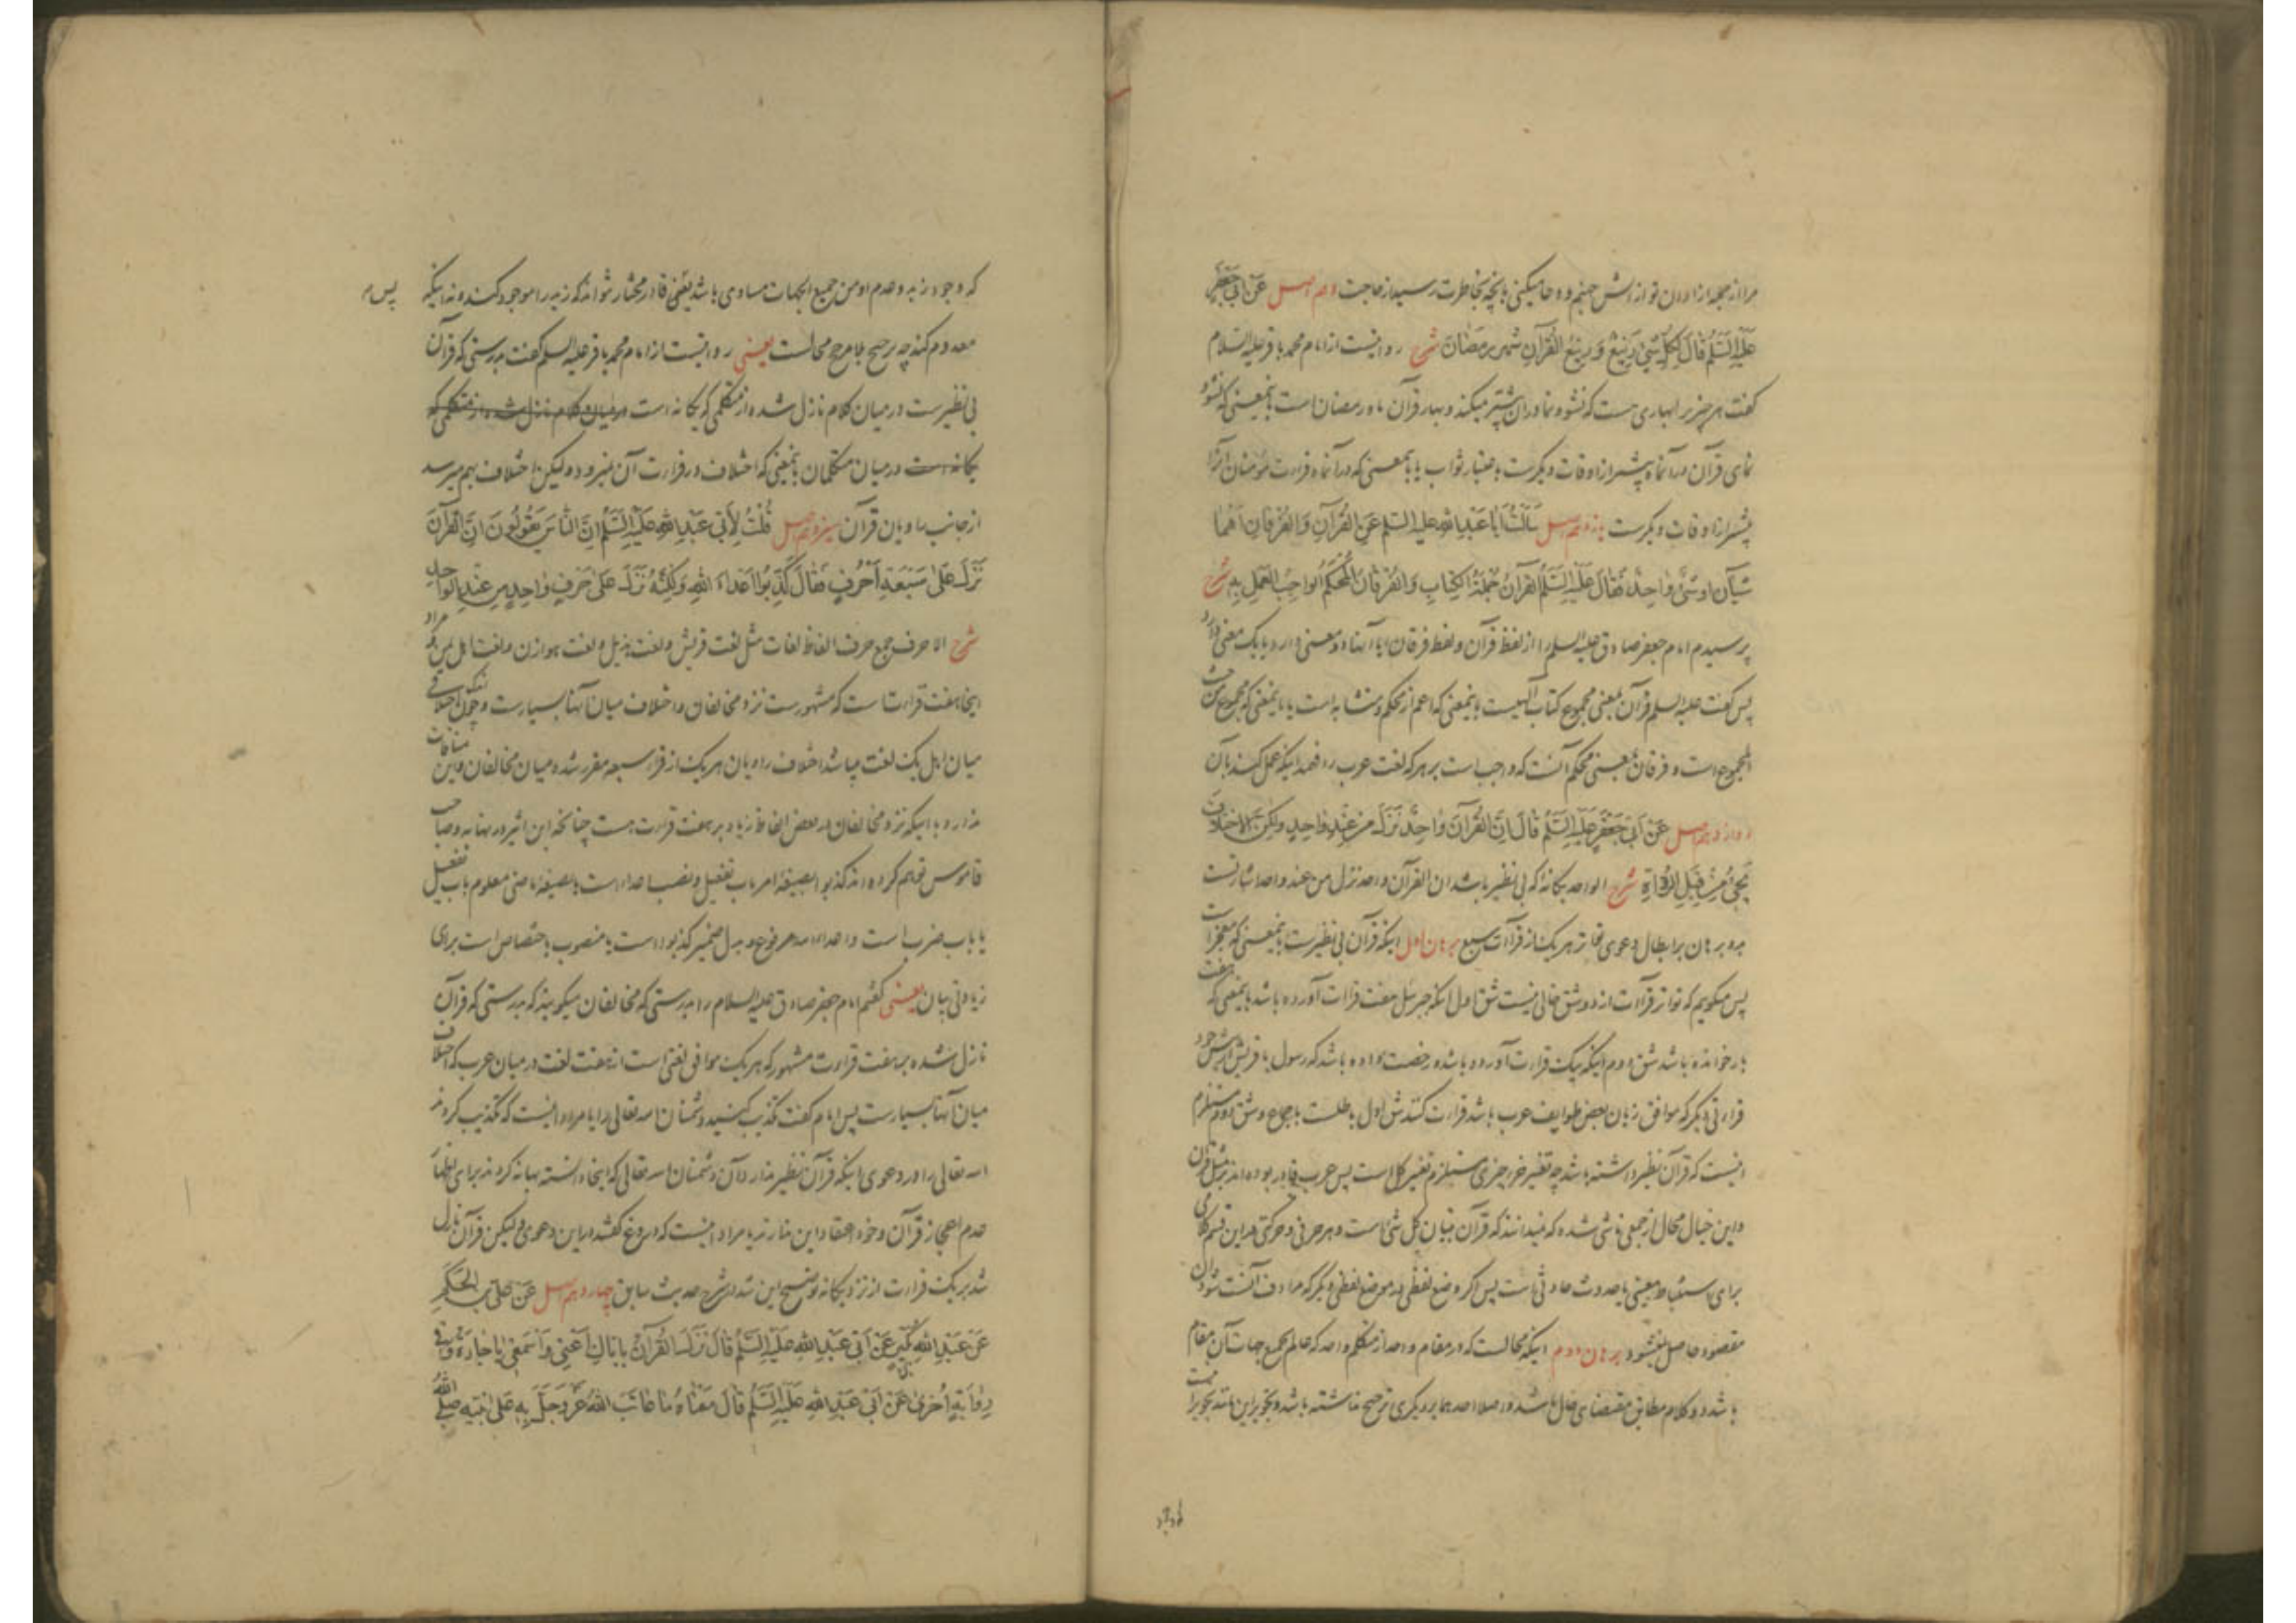 مرا از جمله ازادان تو از آتش جهنم و دعا میکنی بآنچه بخاطرت رسید از حاجت دهم اصل عَنْ اَبی جَعْفَرٍ
عَلَیْهِ السَّلَمُ قالَ لِکُلِّ شَیْءٍ رَبیعٌ وَ رَبیعُ القُرآنِ شَهْرُ رَمَضانَ شرح روایتست از امام محمد باقر علیه السلام
گفت هر چیز را بهاری هست که نشو و نما در ان بیشتر میکند و بهار قرآن ماه رمضان است باینمعنی که نشو و
نمای قرآن در آنماه بیشتر از اوقات دیگرست باعتبار ثواب یا باینمعنی که در آنماه قراءت مؤمنان آنرا
بیشتر از اوقات دیگرست یازدهم اصل سَاَلْتُ اَبا عَبْدِ اللهِ علیه السّلم عَنِ القُرآنِ وَ الفُرْقانِ اَهُما
شَیْآنِ اَوْ شَیْءٌ واحِدٌ فَقالَ عَلَیْهِ السَّلَمُ القُرآنُ جُمْلَةُ الکِتابِ وَ الفُرْقانُ المُحْکَمُ الواجِبُ العَمَلِ بِهِ شرح
پرسیدم امام جعفر صادق علیه السلم را از لفظ قرآن و لفظ فرقان ایا آنها دو معنی دارد یا یک معنی دارد
پس گفت علیه السلم قرآن بمعنی مجموع کتاب آلهیست باینمعنی که اعم از محکم و متشابه است یا باینمعنی که مجموع من حیث
المجموع است و فرقان بمعنی محکم آنست که واجب است بر هر که لغت عرب را فهمد اینکه عمل کند بآن
دوازدهم اصل عَنْ اَبی جَعْفَرٍ عَلَیْهِ السَّلَمُ قالَ اِنَّ القُرآنَ واحِدٌ نَزَلَ مِنْ عِنْدِ واحِدٍ وَلکِنَّ الاِخْتِلافَ
یَجیءُ مِنْ قِبَلِ الرُّواةِ شرح الواحد یگانۀ که بی نظیر باشد ان القرآن واحد نزل من عند واحد اشارتست
بدو برهان بر ابطال دعوی تواتر هر یک از قراآت سبع برهان اول اینکه قرآن بی نظیرست باینمعنی که معجز است
پس میگویم که تواتر قراآت از دو شق خالی نیست شق اول اینکه جبرئیل هفت قراات آورده باشد باینمعنی که هفت
بار خوانده باشد شق دوم اینکه یک قراءت آورده باشد و رخصت داده باشد که رسول با قریش از پیش خود
قراءتی دیگر که موافق زبان بعض طوایف عرب باشد قراءت کند شق اول باطلست باجماع و شق دوم مستلزم
اینست که قرآن نظیر داشته باشد چه تغییر جزء چیزی مستلزم تغییر کل است پس عرب قادر بوده اند بر مثل قرآن
و این خیال محال از جمعی ناشی شده که نمیدانند که قرآن تبیان کل شیء است و هر حرفی و حرکتی در این قسم کلامی
برای استنباط معنیی یا حدوث حادثی است پس اگر وضع لفظی در موضع لفظی دیگر که مرادف آنست شود آن
مقصود حاصل نمیشود برهان دوم اینکه محالست که در مقام واحد از متکلم واحد که عالم بجمیع جهات آن مقام
باشد دو کلام مطابق مقتضای حال باشد و اصلا احدهما بر دیگری ترجیح نداشته باشد و تجویز این مانند تجویز اینست
که وجود زید و عدم او من جمیع الجهات مساوی باشد یعنی قادر مختار تواند که زید را موجود کند و نه اینکه
معدوم کند چه ترجیح بلا مرجح محالست یعنی روایتست از امام محمد باقر علیه السلم گفت بدرستی که قرآن
بی نظیرست در میان کلام نازل شده از متکلمی که یگانه است در میان کلام نازل شده از متکلمی که
یگانه است در میان متکلمان باینمعنی که اختلاف در قراءت آن نمیرود و لیکن اختلاف بهم میرسد
از جانب راویان قرآن سیزدهم اصل قُلْتُ لِاَبی عَبْدِ اللهِ عَلَیْهِ السَّلَمُ اِنَّ النّاسَ یَقُولُونَ اِنَّ القُرآنَ
نَزَلَ عَلی سَبْعَةِ اَحْرُفٍ فَقالَ کَذَّبُوا اَعْداءَ اللهِ وَلکِنَّهُ نَزَلَ عَلی حَرْفٍ واحِدٍ مِنْ عِنْدِ الواحِدِ
شرح الاحرف جمع حرف الفاظ لغات مثل لغت قریش و لغت هذیل و لغت هوازن و لغت اهل یمن و مراد
اینجا هفت قراءت است که مشهورست نزد مخالفان و اختلاف میان آنها بسیارست و چون اختلاف
میان اهل یک لغت میباشد اختلاف راویان هر یک از قراء سبعه مقرر شده میان مخالفان و این منافات
ندارد با اینکه نزد مخالفان در بعض الفاظ زیاده بر هفت قراءت هست چنانچه ابن اثیر در نهایه و صاحب
قاموس توهم کرده اند کذبوا بصیغۀ امر باب تفعیل و نصب اعداء است یا بصیغۀ ماضی معلوم باب تفعیل
یا باب ضرب است و اعداء الله مرفوع و بدل ضمیر کذبوا است یا منصوب باختصاص است برای
زیادتی بیان یعنی گفتم امام جعفر صادق علیه السلام را بدرستی که مخالفان میگویند که بدرستی که قرآن
نازل شده بر هفت قراءت مشهور که هر یک موافق لغتی است از هفت لغت در میان عرب که اختلاف
میان آنها بسیارست پس امام گفت تکذیب کنید دشمنان الله تعالی را یا مراد اینست که تکذیب کردند
الله تعالی را در دعوی اینکه قرآن نظیر ندارد آن دشمنان الله تعالی که اینجا دانسته بهانه کردند برای اظهار
عدم اعجاز قرآن و خود اعتقاد این ندارند یا مراد اینست که دروغ گفتند در این دعوی و لیکن قرآن نازل
شد بر یک قراءت از نزد یگانه توضیح این شد در شرح حدیث سابق چهاردهم اصل عَنْ عَلِیِّ بْنِ الحَکَمِ
عَنْ عَبْدِ اللهِ بْنِ بُکَیْرٍ عَنْ اَبی عَبْدِ اللهِ عَلَیْهِ السَّلَمُ قالَ نَزَلَ القُرآنُ بِاِیّاکِ اَعْنی وَاسْمَعی یا جارَةُ وَ فی
رِوایَةٍ اُخْری عَنْ اَبی عَبْدِ اللهِ عَلَیْهِ السَّلَمُ قالَ مَعْناهُ ما عاتَبَ اللهُ عَزَّ وَجَلَّ بِهِ عَلی نَبِیِّهِ صَلَّی اللهُ